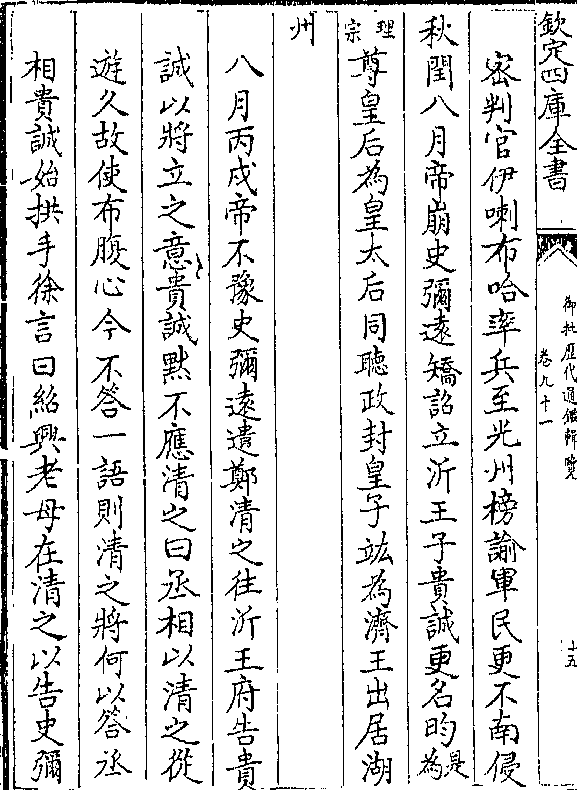 欽定四庫全書
御批歷代通鑑輯覽
卷九十一
十五
密判官伊喇布哈率兵至光州榜諭軍民更不南侵
秋閏八月帝崩史彌遠矯詔立沂王子貴誠更名昀是為
理宗尊皇后為皇太后同聽政封皇子竑為濟王出居湖
州
八月丙戌帝不豫史彌遠遣鄭清之往沂王府告貴
誠以將立之意貴誠默不應清之曰丞相以清之從
遊久故使布腹心今不答一語則清之將何以答丞
相貴誠始拱手徐言曰紹興老母在清之以告史彌